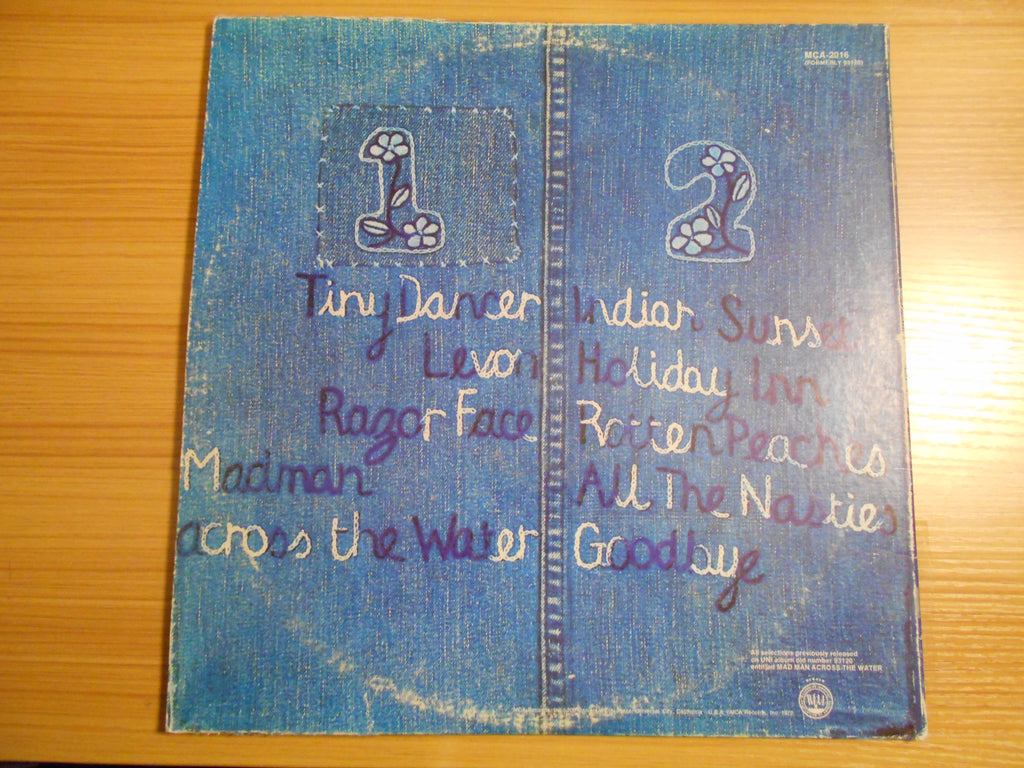 MCA-2016
(FORMERLY 93120)
1
Tiny Dancer
Levon
Razor Face
Madman
across the Water
2
Indian Sunset
Holiday Inn
Rotten Peaches
All The Nasties
Goodbye
All selections previously released
on UNI album old number 93120
entitled MAD MAN ACROSS THE WATER
City, California - U.S.A. MCA Records, Inc. 1972